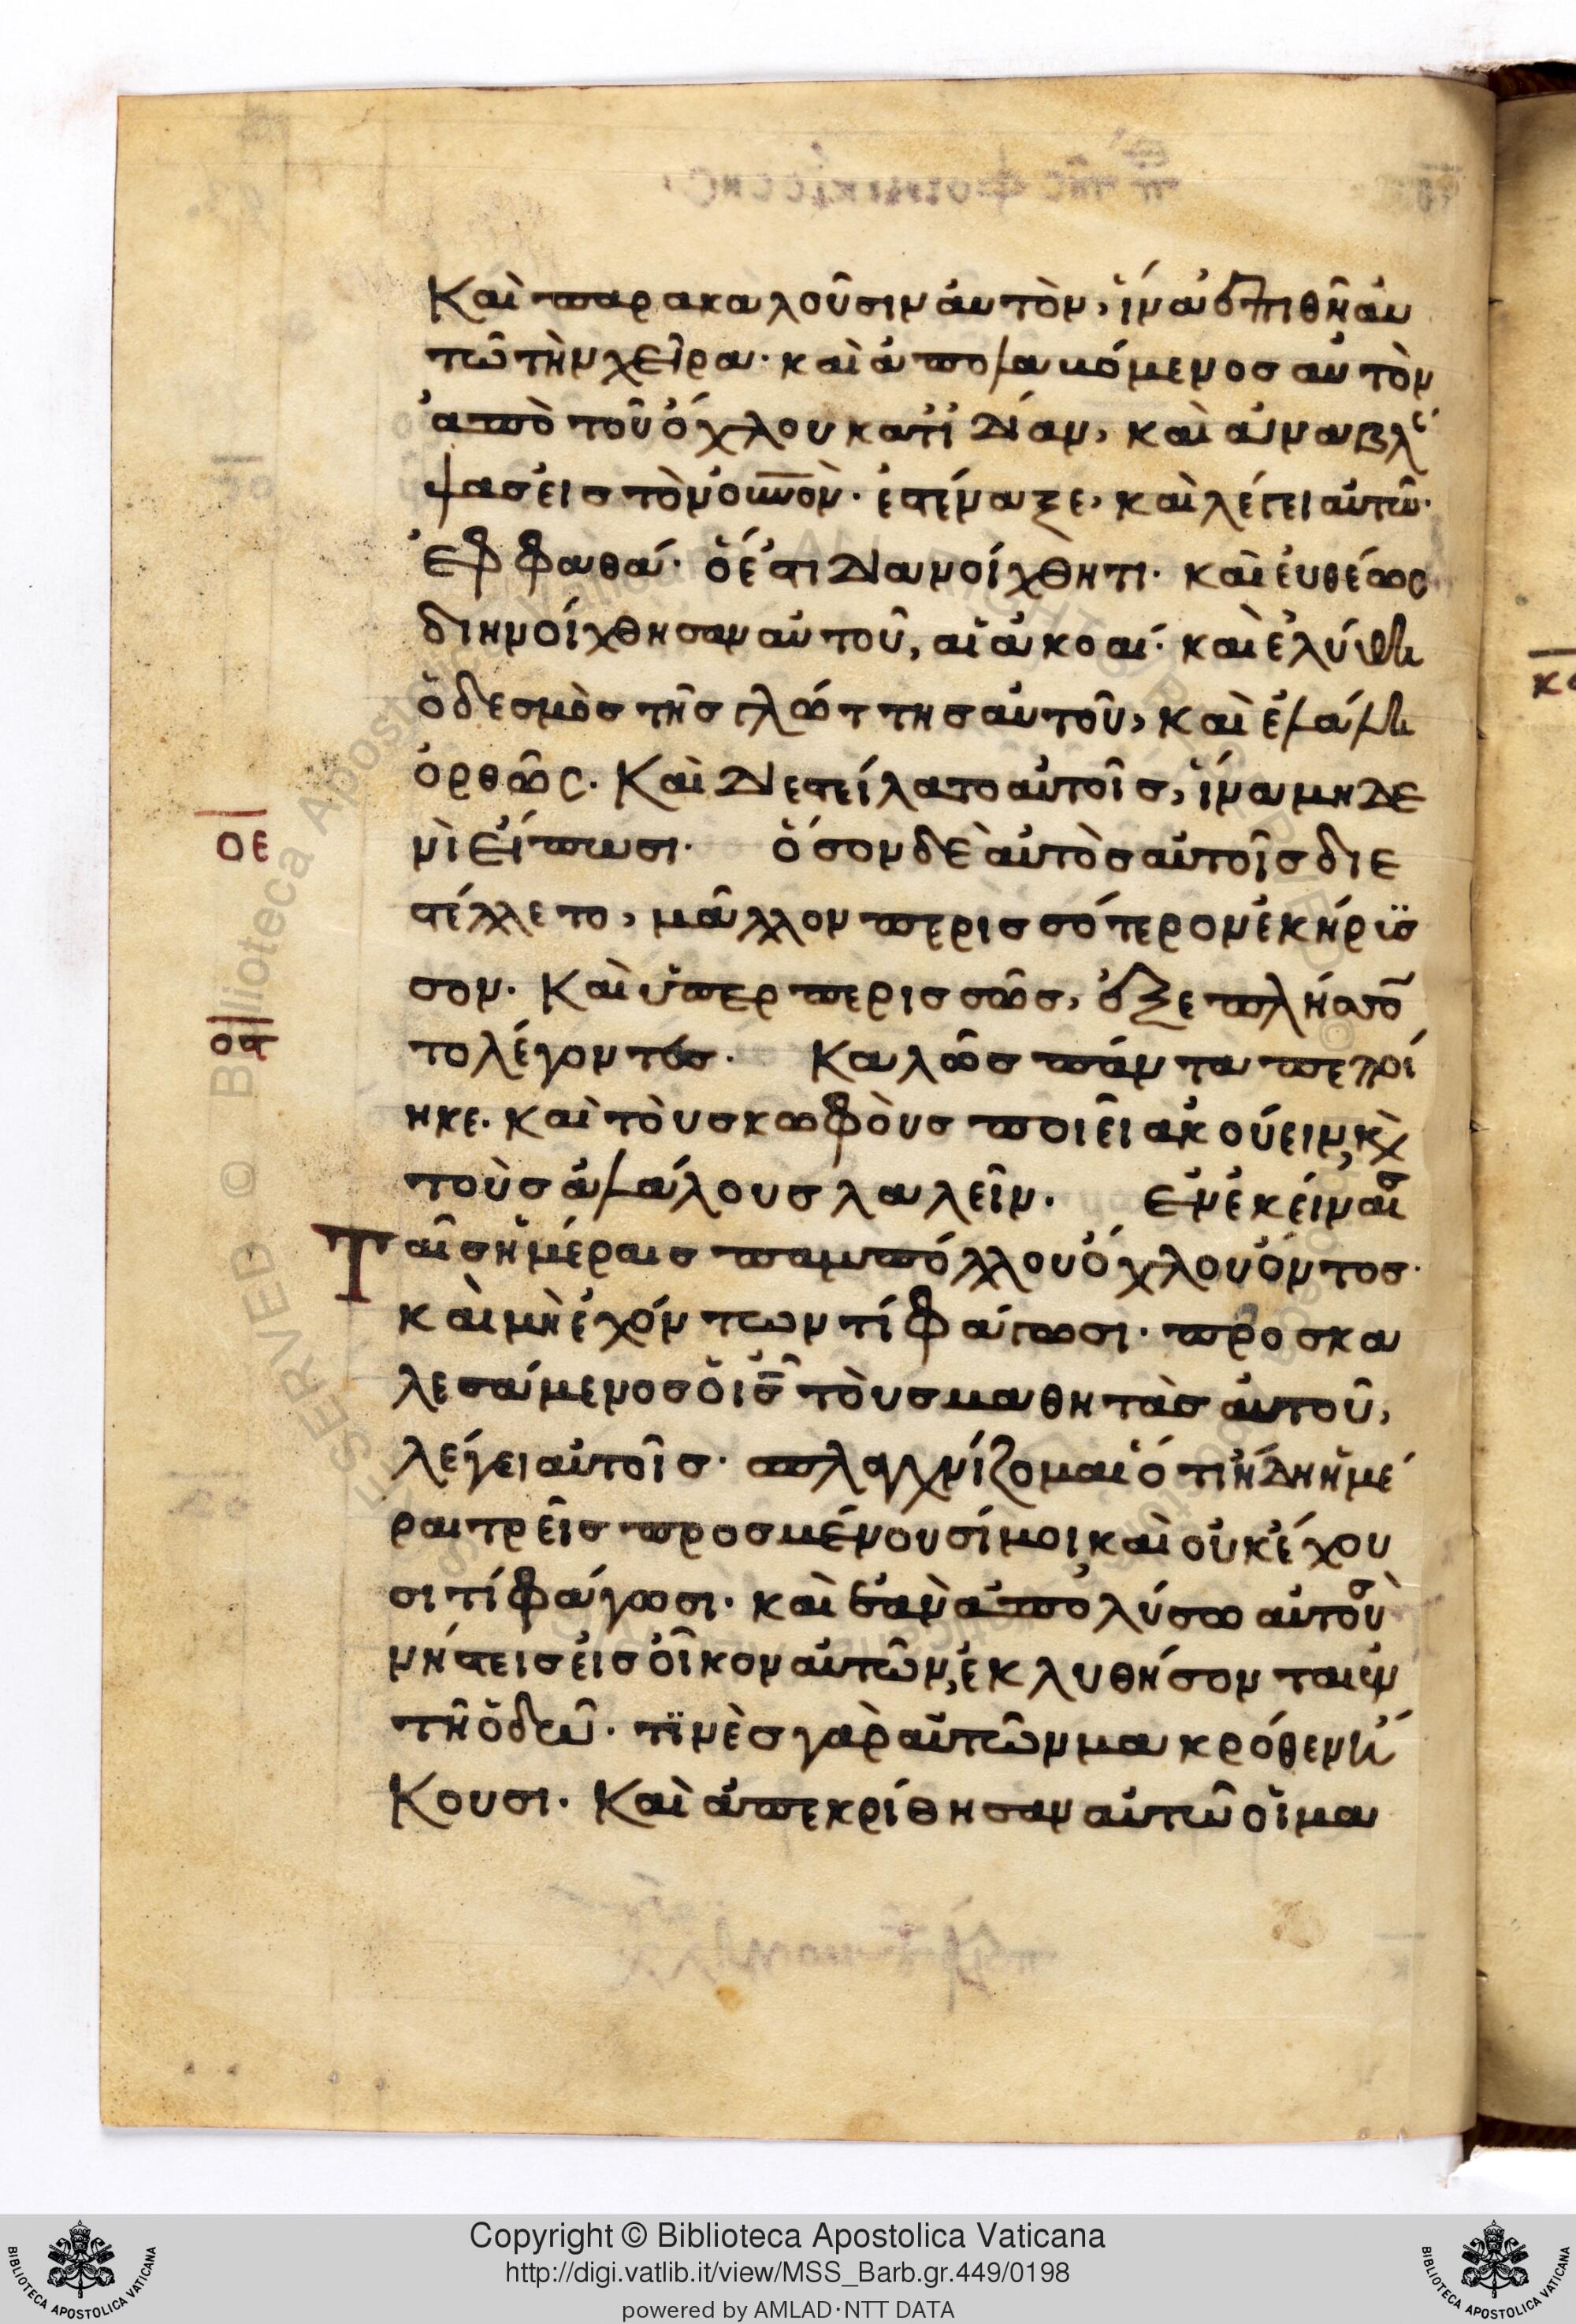 Καὶ παρακαλοῦσιν ἀυτὸν, ἵνα ἐπιθῆ ἀυ
τῶ τὴν χεῖρα· καὶ ἀπολαβόμενος αὐτὸν
ἀπὸ τοῦ ὄχλου κατ ἰδίαν, καὶ ἀναβλέ
ψας εἰς τὸν ουνον· ἐστέναξε, καὶ λέγει αὐτῶ·
ἐφφαθά· ὅ ἐστι διανοίχθητι· καὶ ἐυθέως
διηνοίχθησαν αὐτοῦ, αἱ ἀκοαί· καὶ ἐλύθη
ὁ δεσμὸς τῆς γλώττης αὐτοῦ, καὶ ἐλάλη
ὀρθῶς. Καὶ διεστείλατο αὐτοῖς, ἵνα μηδε
νὶ εἴπωσι· ὅσον δὲ αὐτὸς αὐτοῖς διε
ΟΕ
στέλλετο, μᾶλλον περισσότερον ἐκήρϋσ
σον. Καὶ ὑπερπερισσῶς, ἐξεπλήσσο
ΟϚ
το λέγοντες· Καλῶς πάντα πεποί
ηκε. καὶ τοὺς κωφοὺς ποιεῖ ἀκούειν, κὶ
τοὺς ἀλάλους λαλεῖν· Εν ἐκείναις
Ταῖς ἡμέραις παμπόλλου ὄχλου ὄντος·
καὶ μὴ ἐχόντων τί φάγωσι· προσκα
λεσάμενος ὁ ις τοὺς μαθητὰς ἀυτοῦ,
λέγει αὐτοῖς· σπλαγχνίζομαι ὅτι ἤδη ἡμέ
ραι τρεῖς προσμένουσί μοι, καὶ οὐκ ἔχου
σι τί φάγωσι· καὶ ἐὰν ἀπολύσω αὐτοὺς
νήστεις εἰς οἶκον αὐτῶν, ἐκλυθήσονται ἐν
τῆ ὁδῶ· τϊνὲς γὰρ αὐτῶν μακρόθεν ἥ
Κουσι· Καὶ ἀπεκρίθησαν αὐτῶ οἱ μα
Copyright © Biblioteca Apostolica Vaticana
http://digi.vatlib.it/view/MSS_Barb.gr.449/0198
powered by AMLAD·NTT DATA
BIBLIOTECA APOSTOLICA VATICANA
BIBLIOTECA APOSTOLICA VATICANA